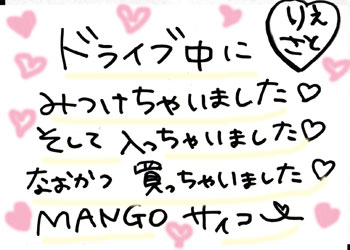 りえ
さと
ドライブ中に
みつけちゃいました♡
そして 入っちゃいました♡
なおかつ 買っちゃいました♡
MANGO サイコー